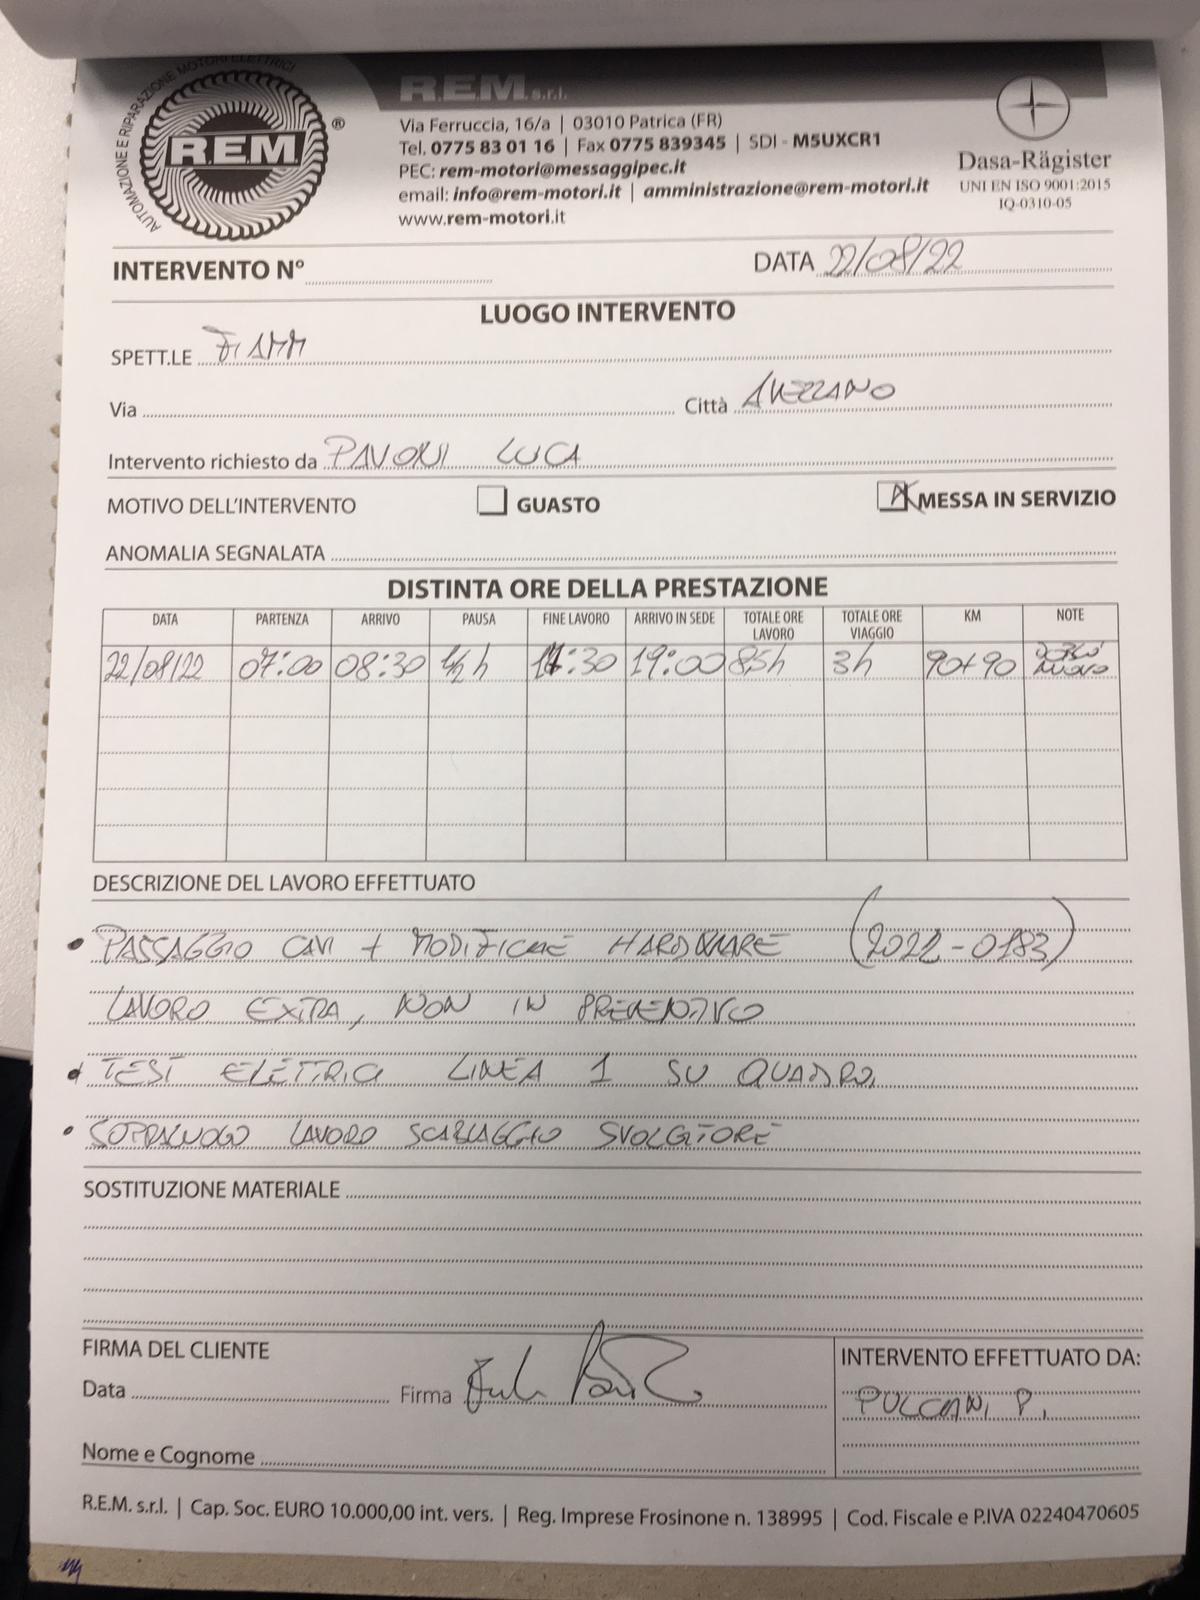 AUTOMAZIONE E RIPARAZIONE MOTORI ELETTRICI
R.E.M. ®
R.E.M. s.r.l.
Via Ferruccia, 16/a | 03010 Patrica (FR)
Tel. 0775 83 01 16 | Fax 0775 839345 | SDI - M5UXCR1
PEC: rem-motori@messaggipec.it
email: info@rem-motori.it | amministrazione@rem-motori.it
www.rem-motori.it
Dasa-Rägister
UNI EN ISO 9001:2015
IQ-0310-05
INTERVENTO N° DATA 22/08/22
LUOGO INTERVENTO
SPETT.LE FIAMM
Via Città AVEZZANO
Intervento richiesto da PAVONI LUCA
MOTIVO DELL'INTERVENTO GUASTO X MESSA IN SERVIZIO
ANOMALIA SEGNALATA
DISTINTA ORE DELLA PRESTAZIONE
DATA PARTENZA ARRIVO PAUSA FINE LAVORO ARRIVO IN SEDE TOTALE ORE LAVORO TOTALE ORE VIAGGIO KM NOTE
22/08/22 07:00 08:30 1/2 h 17:30 19:00 8,5h 3h 90+90 NUOVO
DESCRIZIONE DEL LAVORO EFFETTUATO
• PASSAGGIO CAVI + MODIFICHE HARDWARE (2022-0183)
LAVORO EXTRA, NON IN PREVENTIVO
• TEST ELETTRICI LINEA 1 SU QUADRO,
• SOPRALUOGO LAVORO SCABLAGGIO SVOLGITORE
SOSTITUZIONE MATERIALE
FIRMA DEL CLIENTE
Data Firma
Nome e Cognome
INTERVENTO EFFETTUATO DA:
PULCIANI P.
R.E.M. s.r.l. | Cap. Soc. EURO 10.000,00 int. vers. | Reg. Imprese Frosinone n. 138995 | Cod. Fiscale e P.IVA 02240470605